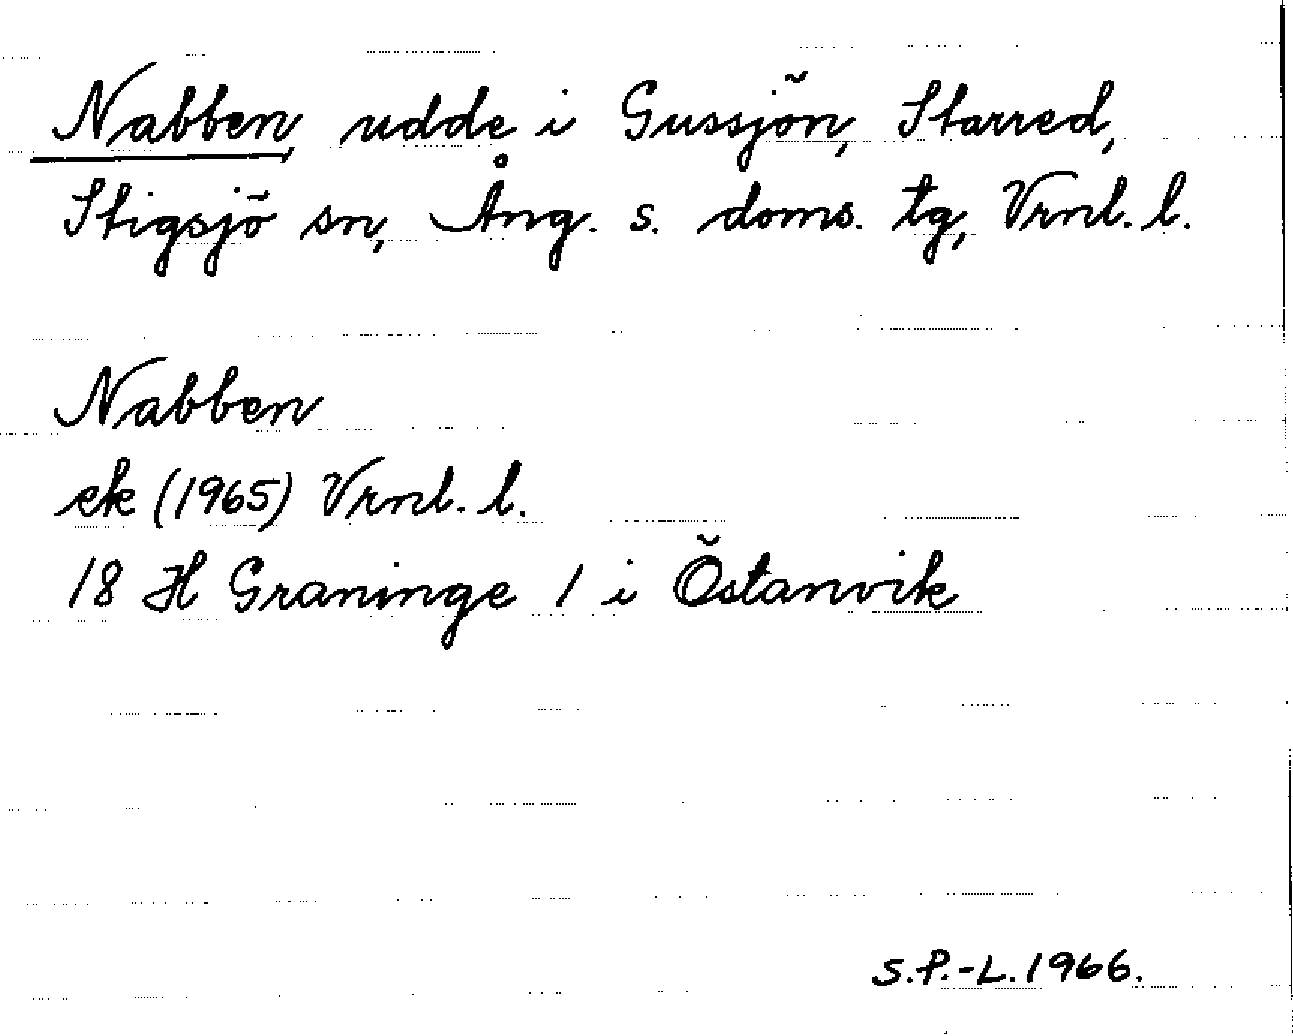 Nabben, udde i Gussjön, Starred,
Stigsjö sn, Ång. s. doms. tg, Vrnl. l.
Nabben
ek (1965) Vrnl. l.
18 H Graninge 1 i Östanvik
S.P.-L. 1966.